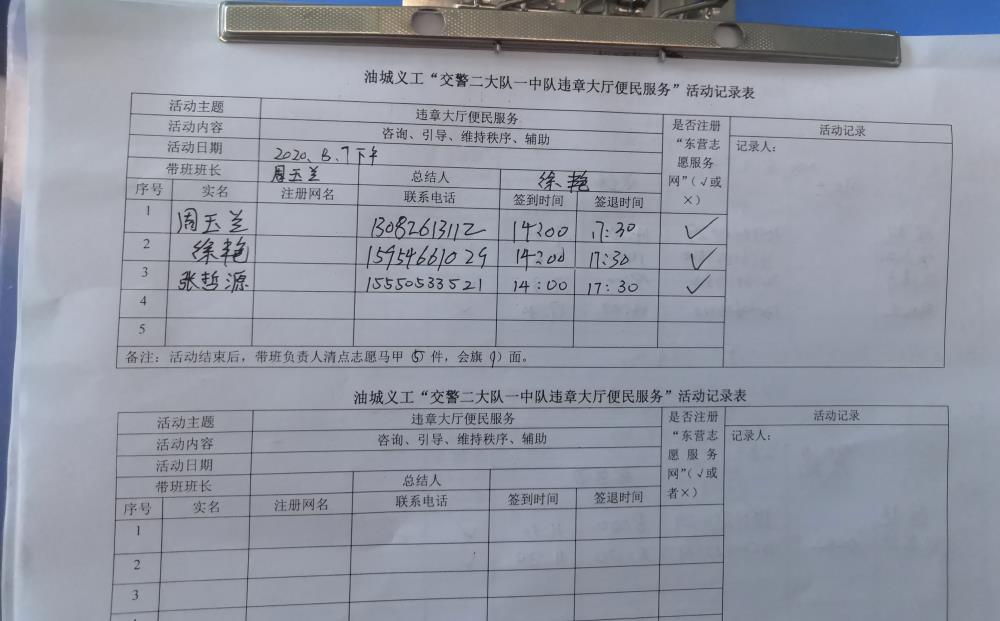 油城义工“交警二大队一中队违章大厅便民服务”活动记录表
活动主题 违章大厅便民服务 是否注册“东营志愿服务网”(√或×) 活动记录
活动内容 咨询、引导、维持秩序、辅助 记录人:
活动日期 2020、8、7下午
带班班长 周玉兰 总结人 徐艳
序号 实名 注册网名 联系电话 签到时间 签退时间
1 周玉兰 13082613112 14:00 17:30 ✓
2 徐艳 15954661029 14:00 17:30 ✓
3 张哲源 15550533521 14:00 17:30 ✓
4
5
备注:活动结束后,带班负责人清点志愿马甲(5)件,会旗(1)面。
油城义工“交警二大队一中队违章大厅便民服务”活动记录表
活动主题 违章大厅便民服务 是否注册“东营志愿服务网”(√或者×) 活动记录
活动内容 咨询、引导、维持秩序、辅助 记录人:
活动日期
带班班长 总结人
序号 实名 注册网名 联系电话 签到时间 签退时间
1
2
3